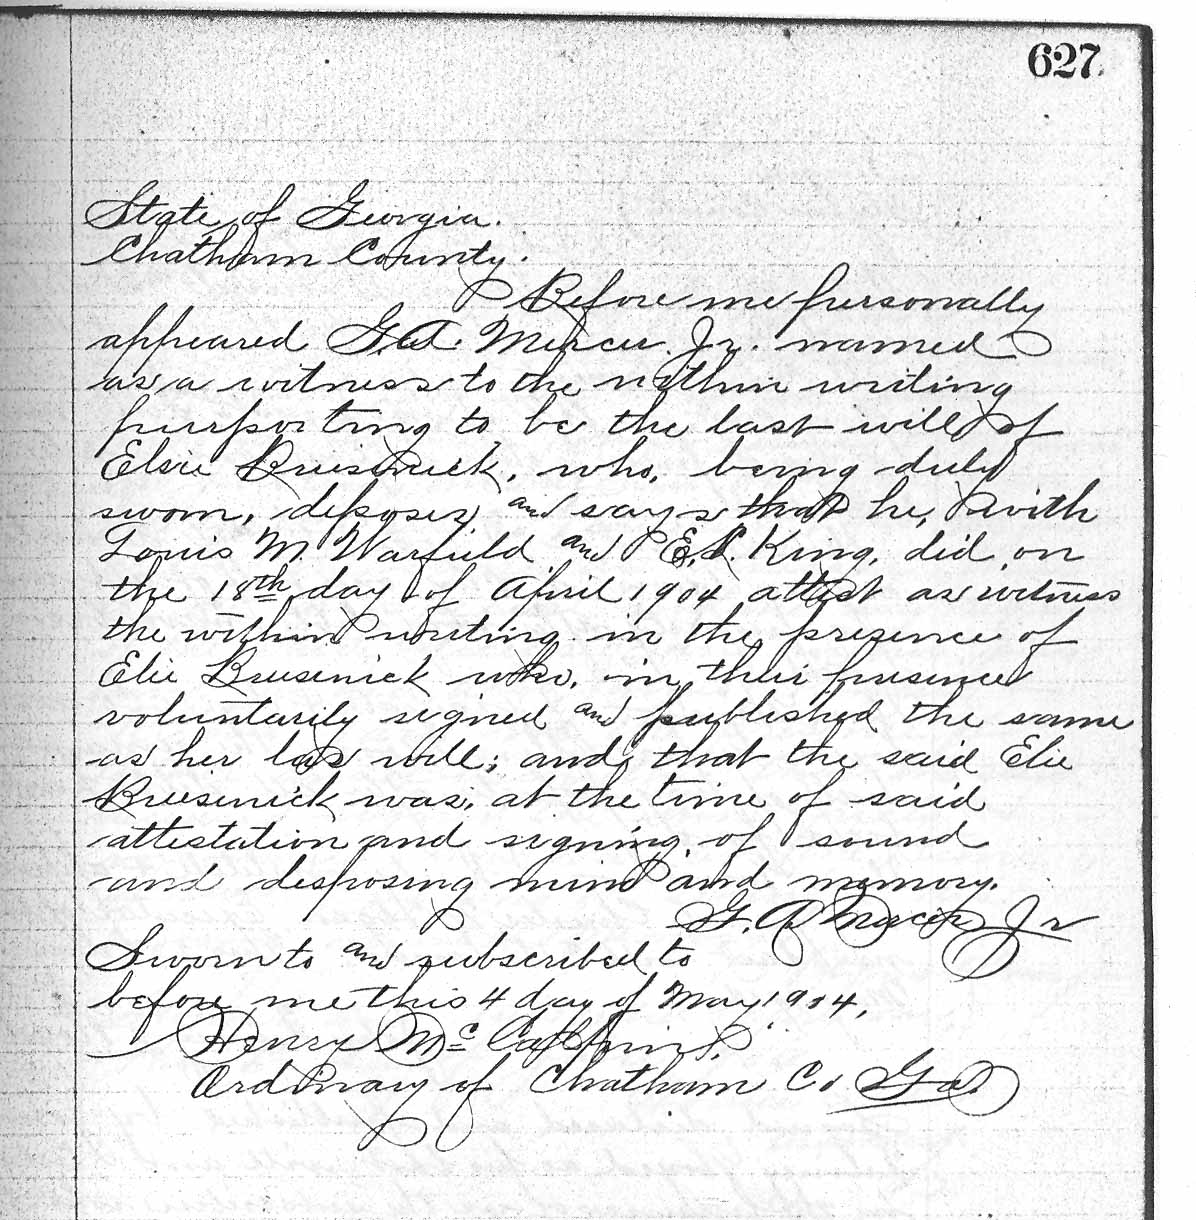 627
State of Georgia.
Chatham County.
Before me personally
appeared G. A. Mercer Jr. named
as a witness to the within writing
purporting to be the last will of
Elsie Bruesnick, who, being duly
sworn, deposes and says that he, with
Louis M Warfield and E. P. King, did on
the 18th day of April 1904 attest as witness
the within writing in the presence of
Elie Brusenick who, in their presence
voluntarily signed and published the same
as her las will; and that the said Elie
Bruesnick was, at the time of said
attestation and signing, of sound
and disposing mind and memory.
G. A. Mercer Jr
Sworn to and subscribed to
before me this 4 day of May 1904,
Henry McAlpin.
Ordinary of Chatham Co Ga.